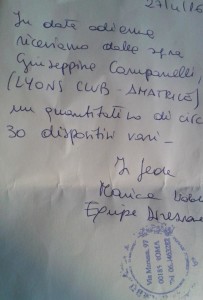 27/11/16
In data odierna
riceviamo dalla sig.ra
Giuseppina Campanelli,
(LYONS CLUB - AMATRICE)
un quantitativo di circa
30 dispositivi vari -
In fede
Monica
Equipe
Via Monza, 
00181 ROMA